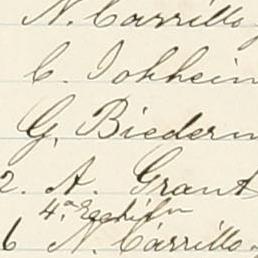 N. Carrillo
C. Jokhein
G. Biederm
2. A. Grant
4.ª
6 N. Carrillo